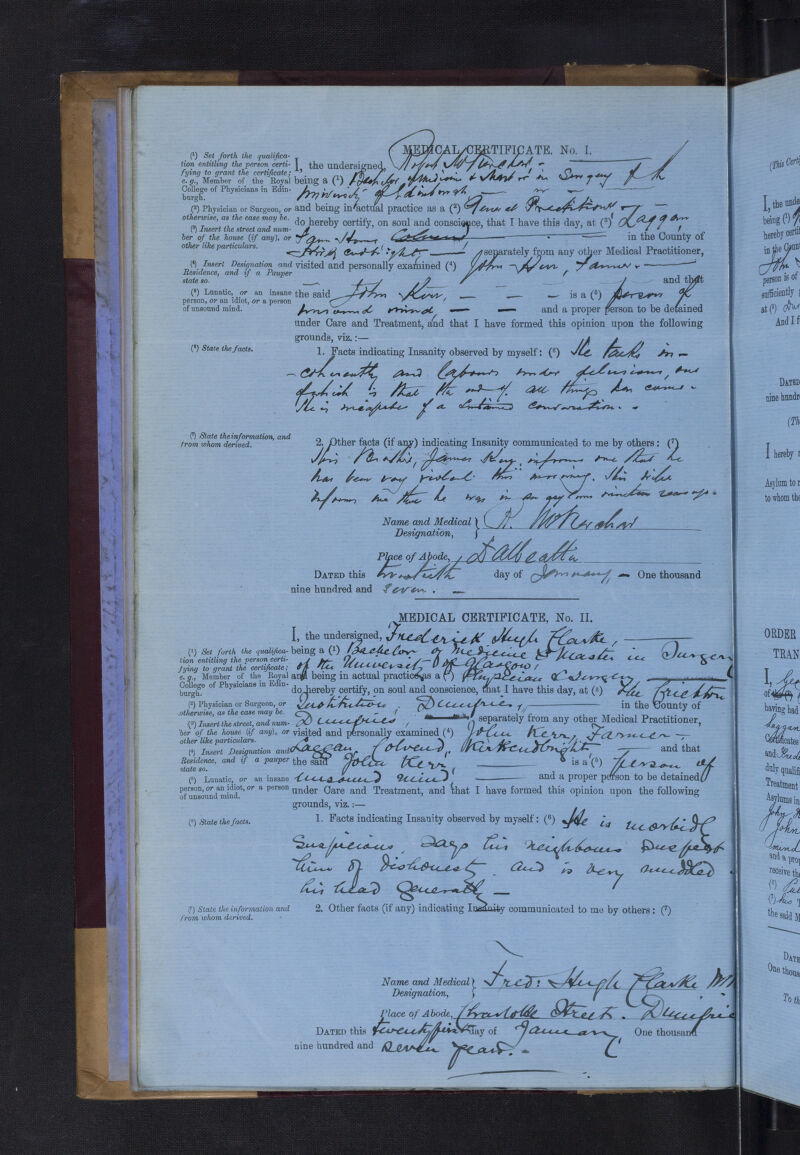 MEDICAL CERTIFICATE. No. I.
(1) Set forth the qualifica-
tion entitling the person certi-
fying to grant the certificate;
e.g., Member of the Royal
College of Physicians in Edin-
burgh.
(2) Physician or Surgeon, or
otherwise, as the case may be.
(3) Insert the street and num-
ber of the house (if any), or
other like particulars.
(4) Insert Designation and
Residence, and if a Pauper
state so.
(5) Lunatic, or an insane
person, or an idiot, or a person
of unsound mind.
(6) State the facts.
(7) State the information, and
from whom derived.
I, the undersigned, Robert McKerchar
being a (1) Bachelor of Medicine & Master in Surgery of the
University of Edinburgh
and being in actual practice as a (2) General Practitioner
do hereby certify, on soul and conscience, that I have this day, at (3) Laggan
Farm House Colvend in the County of
Kirkcudbright separately from any other Medical Practitioner,
visited and personally examined (4) John Kerr, Farmer and that
the said John Kerr, is a (5) person of
unsound mind, and a proper person to be detained
under Care and Treatment, and that I have formed this opinion upon the following
grounds, viz.:—
1. Facts indicating Insanity observed by myself: (6) He talks in-
-coherently and labours under delusions, one
of which is that the end of all things has come.
He is incapable of a conversation.
2. Other facts (if any) indicating Insanity communicated to me by others: (7)
His Brother, James Kerr, informs me that he
has been very violent this morning. His
informs me that he was in an asylum nineteen years ago.
Name and Medical Designation, R. McKerchar
Place of Abode, Dalbeattie
DATED this twentieth day of January One thousand
nine hundred and seven.
MEDICAL CERTIFICATE, No. II.
(1) Set forth the qualifica-
tion entitling the person certi-
fying to grant the certificate;
e.g., Member of the Royal
College of Physicians in Edin-
burgh.
(2) Physician or Surgeon, or
otherwise, as the case may be.
(3) Insert the street, and num-
ber of the house (if any), or
other like particulars.
(4) Insert Designation and
Residence, and if a pauper
state so.
(5) Lunatic, or an insane
person, or an idiot, or a person
of unsound mind.
(6) State the facts.
(7) State the information and
from whom derived.
I, the undersigned, Frederick Hugh Clarke,
being a (1) Bachelor of Medicine & Master in Surgery
of the University of Glasgow,
and being in actual practice as a (2) Physician & Surgeon
do hereby certify, on soul and conscience, that I have this day, at (3) the Crichton
Institution, Dumfries, in the County of
Dumfries, separately from any other Medical Practitioner,
visited and personally examined (4) John Kerr, Farmer
Laggan, Colvend, Kirkcudbright and that
the said John Kerr, is a (5) person of
unsound mind, and a proper person to be detained
under Care and Treatment, and that I have formed this opinion upon the following
grounds, viz.:—
1. Facts indicating Insanity observed by myself: (6) He is morbidly
suspicious, says his neighbours suspect
him of dishonesty and is very muddled in
his head generally
2. Other facts (if any) indicating Insanity communicated to me by others: (7)
Name and Medical Designation, Fred: Hugh Clarke
Place of Abode, Charlotte Street. Dumfries
DATED this twenty first day of January, One thousand
nine hundred and seven years.
(This Certi
I, the unde
being (1)
hereby certif
in the Count
person is of
sufficiently
at (3)
And I f
DATED
nine hundr
(Th
I hereby
Asylum to
to whom the
ORDER
TRAN
I,
having had
Laggan
Certificates
and
duly qualifi
Treatment
Asylums in
John
mind
and a prop
receive th
the said
DATE
One thous
To th